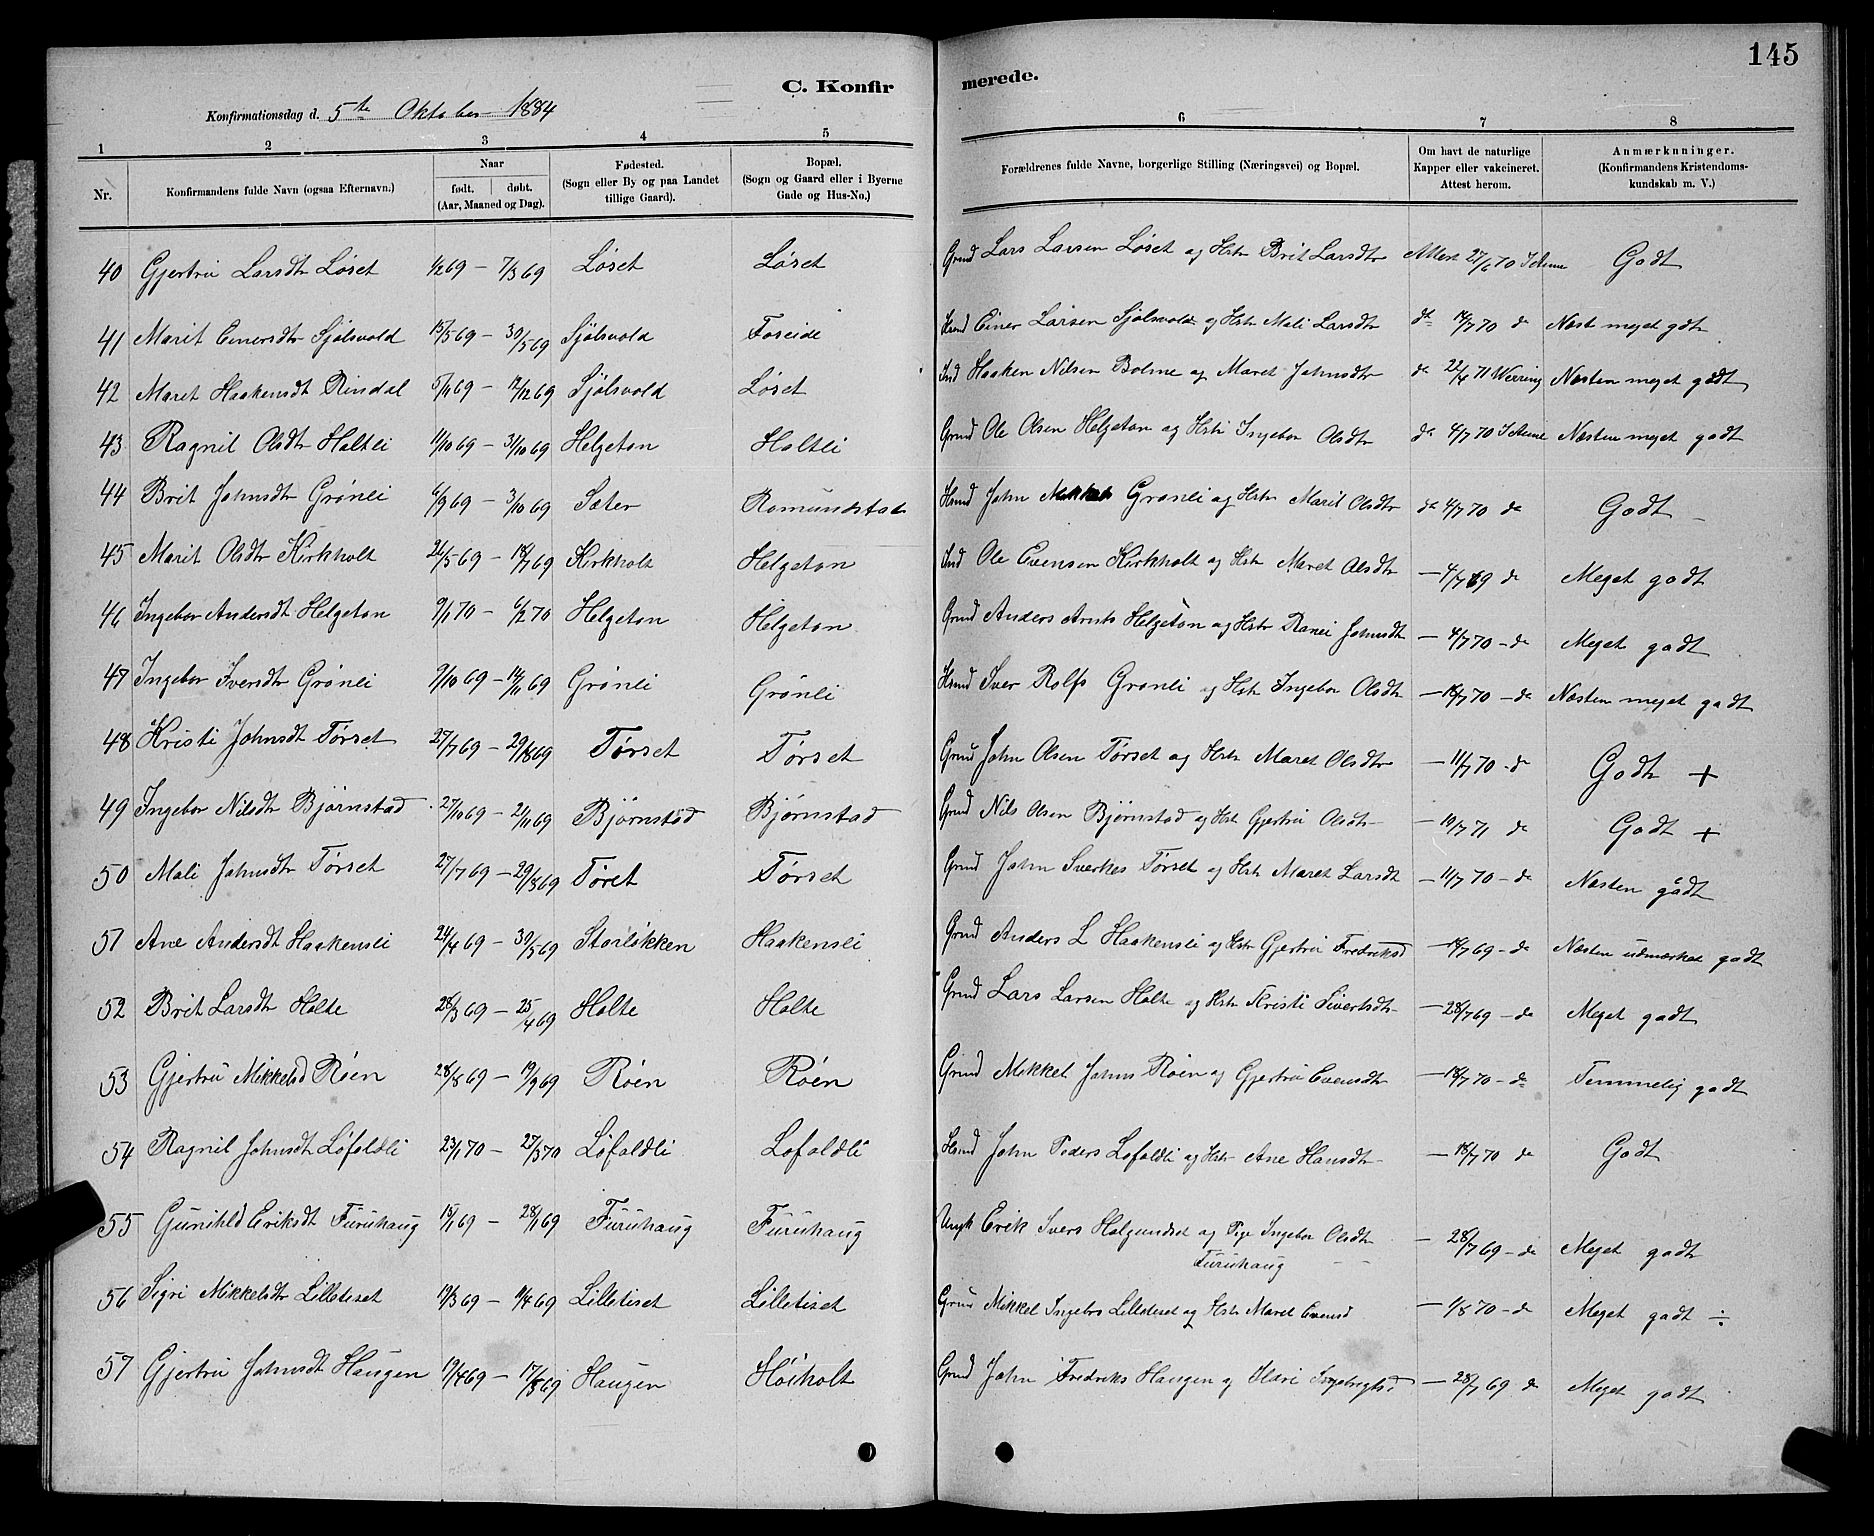 145
C. Konfirmerede.
Konfirmationsdag d. 5te Oktober 1884
1 2 3 4 5 6 7 8
Nr. Konfirmandens fulde Navn (ogsaa Efternavn.) Naar født. døbt. (Aar, Maaned og Dag). Fødested. (Sogn eller By og paa Landet tillige Gaard). Bopæl. (Sogn og Gaard eller i Byerne Gade og Hus-No.) Forældrenes fulde Navne, borgerlige Stilling (Næringsvei) og Bopæl. Om havt de naturlige Kapper eller vakcineret. Attest herom. Anmærkninger. (Konfirmandens Kristendomskundskab m. V.)
40 Gjertru Larsdtr Løset 1/2 69 – 7/3 69 Løset Løset Grmd Lars Larsen Løset og Hstr Brit Larsdtr Attest 27/6 70 Godt
41 Marit Einersdtr Sjølsvold 15/5 69 – 30/5 69 Sjølsvold Foseide Hsmd Einer Larsen Sjølsvold og Hstr Mali Larsdtr do 14/7 70 do Næst meget gdt
42 Maret Haakensdt Rindal 5/11 69 – 12/12 69 Sjølsvold Løset Ind Haaken Nilsen Bolme og Maret Johnsdtr do 22/4 71 Werring Næsten meget godt
43 Ragnil Olsdtr Holtli 11/10 69 – 31/10 69 Helgeton Holtli Grmd Ole Olsen Helgeton og Hstr Ingebor Olsdtr do 4/7 70 Næsten meget godt
44 Brit Johnsdtr Grønli 6/9 69 – 3/10 69 Sæter Romundstad Hsmd John Grønli og Hstr Marit Olsdtr do 4/7 70 do Godt –
45 Marit Olsdtr Kirkholt 26/5 69 – 18/7 69 Kirkholt Helgeton Ind Ole Evensen Kirkholt og Hstr Maret Olsdtr – 4/7 69 do Meget godt
46 Ingebor Andersdt Helgeton 9/1 70 – 6/2 70 Helgeton Helgeton Grmd Anders Arnts Helgeton og Hstr Ranei Johnsdtr – 4/7 70 – do Meget godt
47 Ingebor Iversdtr Grønli 9/10 69 – 14/11 69 Grønli Grønli Hsmd Iver Rolfs Grønli og Hstr Ingebor Olsdtr – 18/7 70 – do Næsten meget godt
48 Kristi Johnsdt Tørset 27/7 69 – 29/8 69 Tørset Tørset Grmd John Olsen Tørset og Hstr Maret Olsdtr – 11/7 70 – do Godt +
49 Ingebor Nilsdt Bjørnstad 27/10 69 – 21/11 69 Bjørnstad Bjørnstad Grmd Nils Olsen Bjørnstad og Hst Gjertru Olsdtr – 10/7 71 do Godt +
50 Mali Johnsdtr Tørset 27/7 69 – 29/8 69 Tøret Tørset Grmd John Sverkes Tørset og Hstr Maret Larsdt – 11/7 70 – do Næsten godt
51 Ane Andersdt Haakensli 24/4 69 – 30/5 69 Storløkken Haakensli Grmd Anders L Haakensli og Hstr Gjertru Fredriksd – 18/7 69 – do Næsten udmærket godt
52 Brit Larsdtr Holte 28/3 69 – 25/4 69 Holte Holte Grmd Lars Larsen Holte og Hstr Kristi Sivertsdtr – 28/7 69 – do Meget godt
53 Gjertru Mikkelsd Røen 28/8 69 – 19/9 69 Røen Røen Grmd Mikkel Johns Røen og Gjertru Evensdtr – 18/7 70 – do Temmelig godt
54 Ragnil Johnsdt Løfaldli 23/1 70 – 27/3 70 Løfaldli Lofaldli Hsmd John Peders Lofaldli og Hstr Ane Hansdtr – 18/7 70 do Godt
55 Gunihld Eriksdt Furuhaug 15/1 69 – 28/1 69 Furuhaug Furuhaug Ungk Erik Ivers Halgundset og Pige Ingebor Olsdtr – 28/7 69 – do Meget godt
Furuhaug
56 Sigri Mikkelsdtr Lilletiset 19/3 69 – 11/4 69 Lilletiset Lilletiset Grmd Mikkel Ingebrs Lilletiset og Hstr Maret Evensd – 1/8 70 – do Meget godt ÷
57 Gjertru Johnsdt Haugen 19/4 69 – 17/8 69 Haugen Høiholt Grmd John Fredriks Haugen og Kari Ingebrigtsd – 28/7 69 do Meget godt